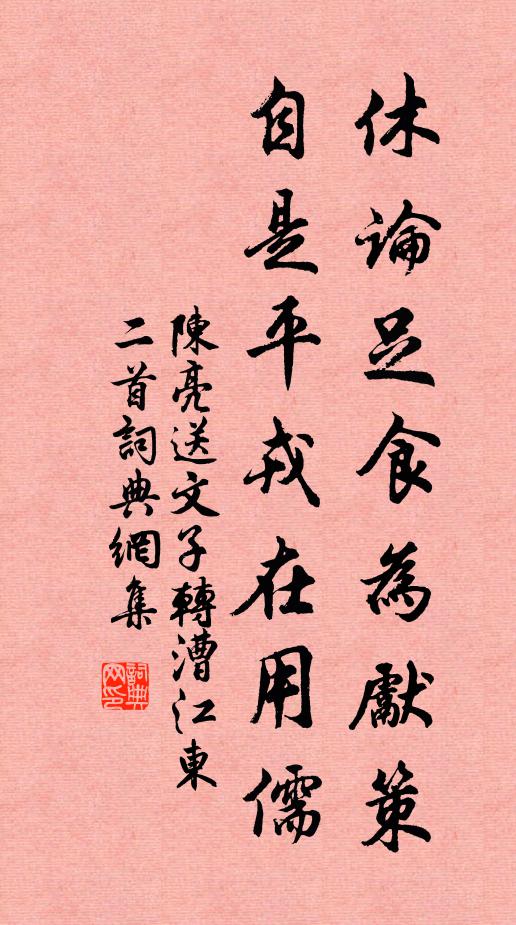 休論足食為獻策
自是平戎在用儒
陳亮送文子轉漕江東
二首詞典網集
詞典
网印